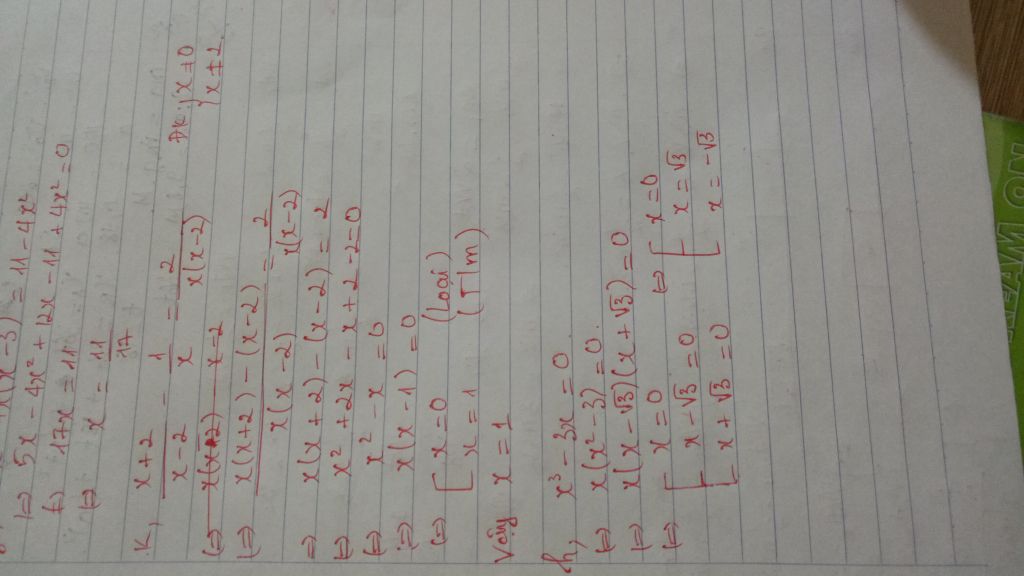 x(x-3) = 11 - 4x²
⇔ 5x - 4x² + 12x - 11 + 4x² = 0
⇔ 17x = 11
⇔ x = 11/17
K, (x+2)/(x-2) - 1/x = 2/(x(x-2)) ĐK: { x ≠ 0
{ x ≠ 2
⇔ (x(x+2) - (x-2))/(x(x-2)) = 2/(x(x-2))
⇒ x(x+2) - (x-2) = 2
⇔ x² + 2x - x + 2 - 2 = 0
⇔ x² - x = 0
⇔ x(x-1) = 0
⇔ [ x = 0 (Loại)
[ x = 1 (T/m)
Vậy x = 1
h, x³ - 3x = 0
⇔ x(x²-3) = 0
⇔ x(x-√3)(x+√3) = 0
⇔ [ x = 0 ⇔ [ x = 0
[ x - √3 = 0 [ x = √3
[ x + √3 = 0 [ x = -√3